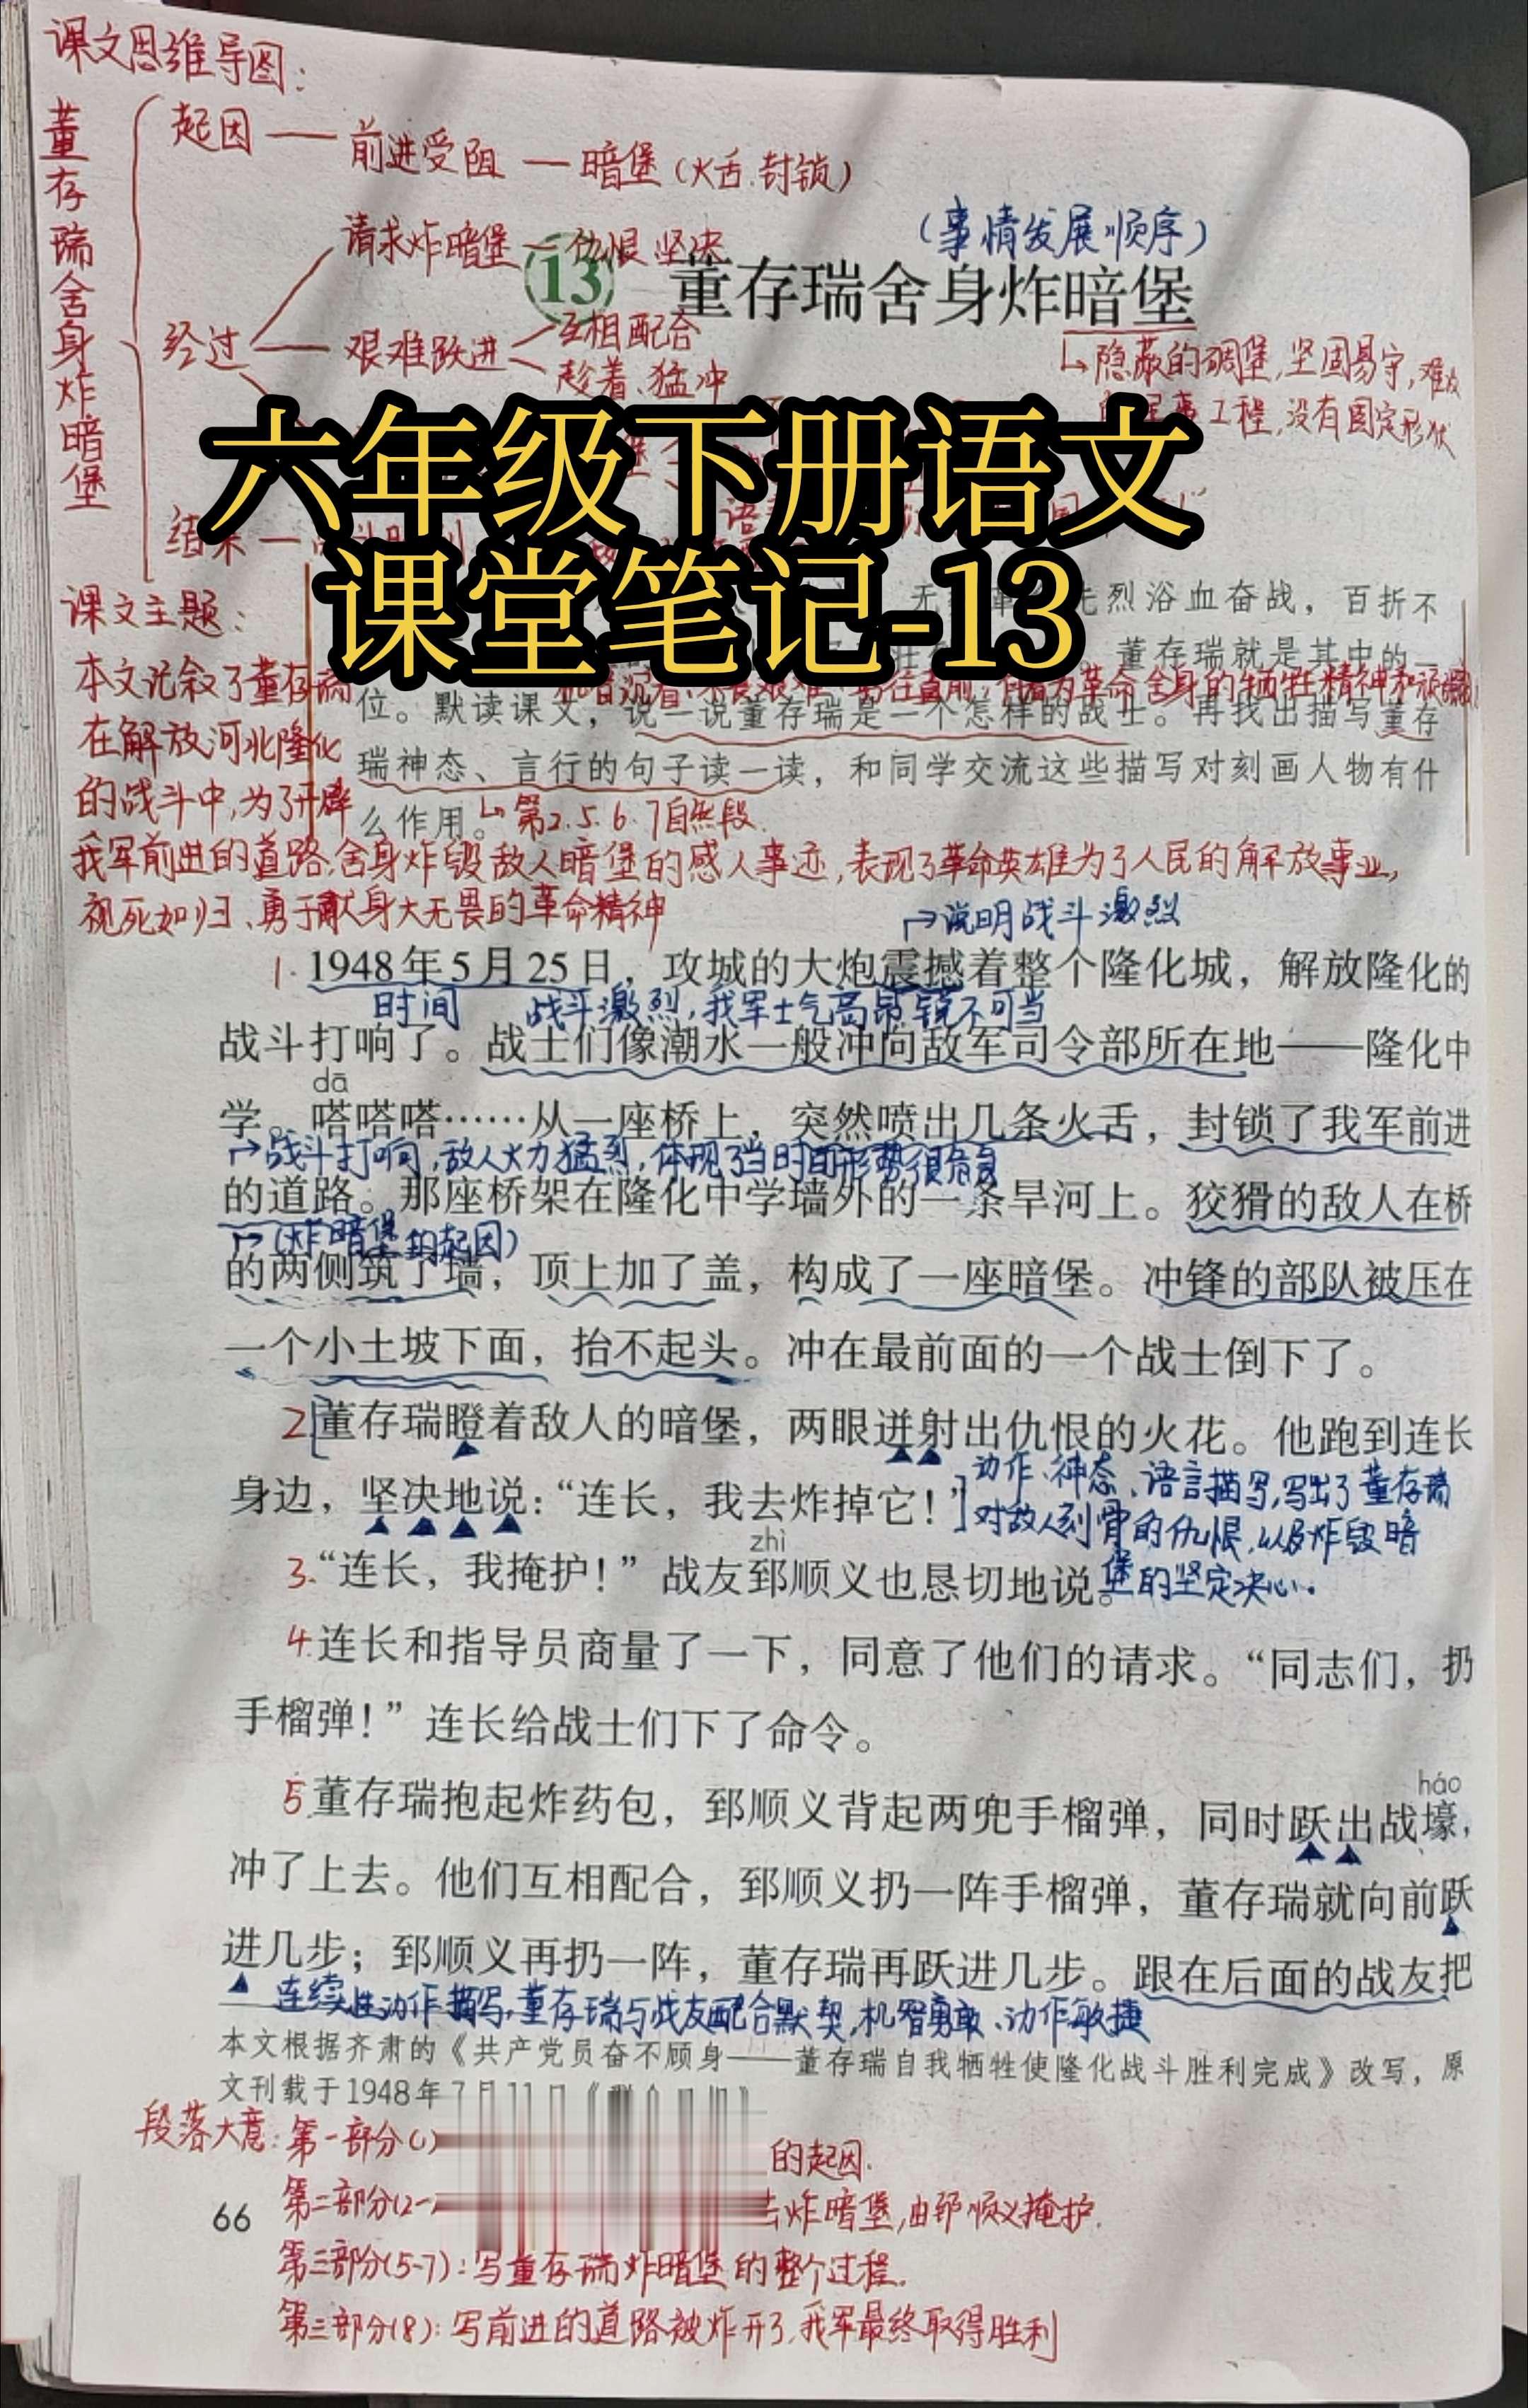 课文思维导图:
董存瑞舍身炸暗堡
起因 — 前进受阻 — 暗堡(火舌、封锁)
请求炸暗堡 — 仇恨 坚决
经过
艰难跃进
互相配合
趁着、猛冲
结果
(事情发展顺序)
13 董存瑞舍身炸暗堡
隐蔽的碉堡,坚固易守,难攻
工程,没有固定形状
六年级下册语文
课堂笔记-13
先烈浴血奋战,百折不
董存瑞就是其中的一
为革命舍身的牺牲精神和
位。默读课文,说一说董存瑞是一个怎样的战士。再找出描写董存
瑞神态、言行的句子读一读,和同学交流这些描写对刻画人物有什
么作用。
第2.5.6.7自然段.
课文主题:
本文记叙了董存瑞
在解放河北隆化
的战斗中,为了开辟
我军前进的道路,舍身炸毁敌人暗堡的感人事迹,表现了革命英雄为了人民的解放事业,
视死如归、勇于献身大无畏的革命精神
说明战斗激烈
1.1948年5月25日,攻城的大炮震撼着整个隆化城,解放隆化的
时间 战斗激烈,我军士气高昂 锐不可当
战斗打响了。战士们像潮水一般冲向敌军司令部所在地——隆化中
dā
学。嗒嗒嗒……从一座桥上,突然喷出几条火舌,封锁了我军前进
战斗打响,敌人火力猛烈,体现了当时的形势很危急
的道路。那座桥架在隆化中学墙外的一条旱河上。狡猾的敌人在桥
(炸暗堡的起因)
的两侧筑了墙,顶上加了盖,构成了一座暗堡。冲锋的部队被压在
一个小土坡下面,抬不起头。冲在最前面的一个战士倒下了。
2董存瑞瞪着敌人的暗堡,两眼迸射出仇恨的火花。他跑到连长
身边,坚决地说:“连长,我去炸掉它!”
动作、神态、语言描写,写出了董存瑞
对敌人刻骨的仇恨,以及炸毁暗
堡的坚定决心。
zhì
3.“连长,我掩护!”战友郅顺义也恳切地说。
4.连长和指导员商量了一下,同意了他们的请求。“同志们,扔
手榴弹!”连长给战士们下了命令。
háo
5董存瑞抱起炸药包,郅顺义背起两兜手榴弹,同时跃出战壕,
冲了上去。他们互相配合,郅顺义扔一阵手榴弹,董存瑞就向前跃
进几步;郅顺义再扔一阵,董存瑞再跃进几步。跟在后面的战友把
连续性动作描写,董存瑞与战友配合默契,机智勇敢、动作敏捷
本文根据齐肃的《共产党员奋不顾身——董存瑞自我牺牲使隆化战斗胜利完成》改写,原
文刊载于1948年7月11日
段落大意:第一部分(1) 的起因.
第二部分(2- 去炸暗堡,由郅顺义掩护.
66
第三部分(5-7):写董存瑞炸暗堡的整个过程.
第三部分(8):写前进的道路被炸开了,我军最终取得胜利